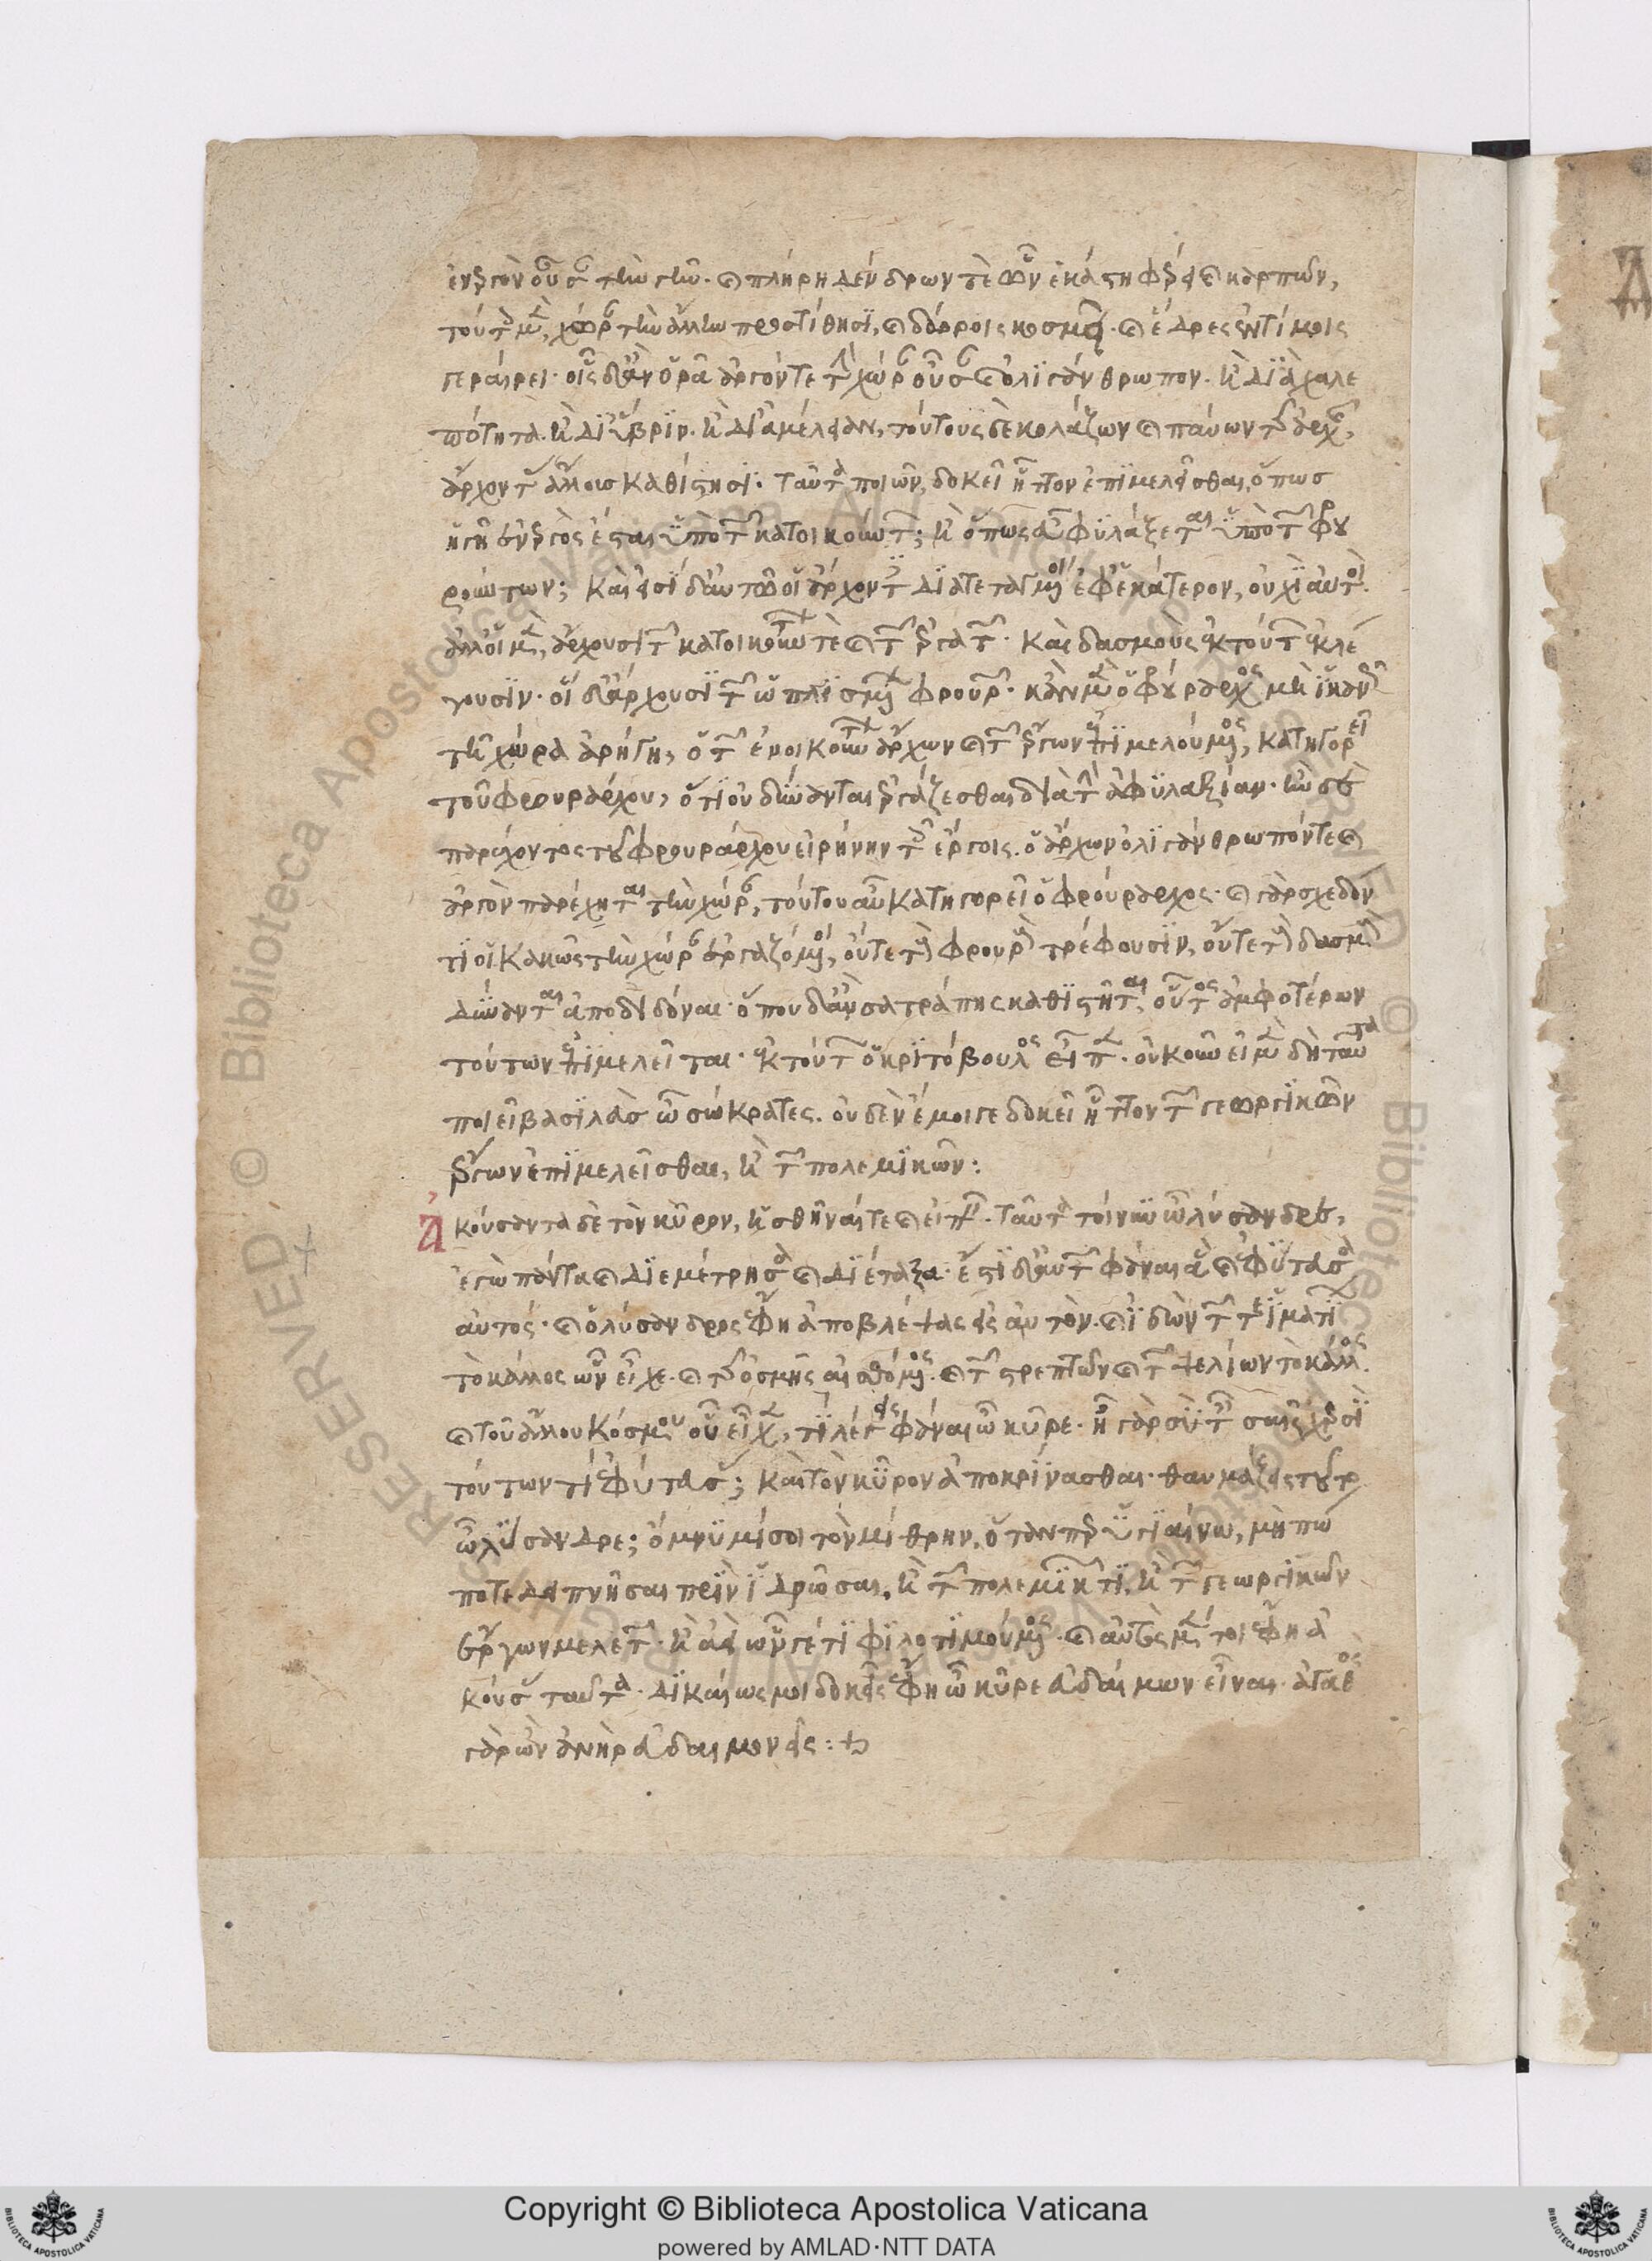 ἐνεργὸν οὖσαν τὴν γῆν. καὶ πλήρη δένδρων τε ὧν ἑκάστη φέρει καὶ καρπῶν,
τούτῳ μὲν, χώραν τὴν ἄλλην προστίθησι, καὶ δώροις κοσμεῖ. καὶ ἕδραις ἐντίμοις
γεραίρει· οἷς δ' ἂν ὁρᾷ ἀργόν τε τὴν χώραν οὖσαν καὶ ὀλιγάνθρωπον. ἢ διὰ χαλε
πότητα. ἢ δι' ὕβριν. ἢ δι' ἀμέλειαν, τούτους δὲ κολάζων καὶ παύων τῆς ἀρχῆς,
ἄρχοντας ἄλλους καθίστησι. ταῦτα ποιῶν, δοκεῖ ἧττον ἐπιμελεῖσθαι, ὅπως
ἡ γῆ ἐνεργὸς ἔσται ὑπὸ τῶν κατοικούντων; ἢ ὅπως εὖ φυλάξεται ὑπὸ τῶν φρου
ρούντων; καὶ εἰσὶ δ' αὐτῷ οἱ ἄρχοντες διατεταγμένοι ἐφ' ἑκάτερον, οὐχὶ αὐτοί.
ἀλλ' οἱ μὲν, ἄρχουσι τῶν κατοικούντων τε καὶ τῶν ἐργατῶν. καὶ δασμοὺς ἐκ τούτων ἐκλέ
γουσιν. οἱ δ' ἄρχουσι τῶν ὡπλισμένων φρουρῶν. κἂν μὲν ὁ φρούραρχος μὴ ἱκανῶς
τῇ χώρᾳ ἀρήγῃ, ὁ τῶν ἐνοικούντων ἄρχων καὶ τῶν ἔργων ἐπιμελούμενος, κατηγορεῖ
τοῦ φρουράρχου, ὅτι οὐ δύνανται ἐργάζεσθαι διὰ τὴν ἀφυλαξίαν. ἢν δὲ
παρέχοντος τοῦ φρουράρχου εἰρήνην τοῖς ἔργοις. ὁ ἄρχων ὀλιγάνθρωπόν τε καὶ
ἀργὸν παρέχηται τὴν χώραν, τούτου αὖ κατηγορεῖ ὁ φρούραρχος. καὶ γὰρ σχεδόν
τι οἱ κακῶς τὴν χώραν ἐργαζόμενοι, οὔτε τοὺς φρουροὺς τρέφουσιν, οὔτε τοὺς δασμοὺς
δύνανται ἀποδιδόναι. ὅπου δ' ἂν σατράπης καθίστηται, οὗτος ἀμφοτέρων
τούτων ἐπιμελεῖται. ἐκ τούτων ὁ κριτόβουλος εἶπεν. οὐκοῦν εἰ μὲν δὴ ταῦτα
ποιεῖ βασιλεὺς ὦ σώκρατες. οὐδὲν ἔμοιγε δοκεῖ ἧττον τῶν γεωργικῶν
ἔργων ἐπιμελεῖσθαι, ἢ τῶν πολεμικῶν:
Ἀκούσαντα δὲ τὸν κῦρον, ἡσθῆναί τε καὶ εἰπεῖν. ταῦτα τοίνυν ὦ λύσανδρε,
ἐγὼ πάντα καὶ διεμέτρησα καὶ διέταξα. ἔστι δ' αὐτῶν φάναι ἃ καὶ ἐφύτευσα
αὐτός. καὶ ὁ λύσανδρος ἔφη ἀποβλέψας εἰς αὐτὸν. καὶ ἰδὼν τῶν τε ἱματίων
τὸ κάλλος ὧν εἶχε. καὶ τῆς ὀσμῆς αἰσθόμενος. καὶ τῶν στρεπτῶν καὶ τῶν ψελίων τὸ κάλλος.
καὶ τοῦ ἄλλου κόσμου οὗ εἶχεν, τί λέγεις φάναι ὦ κῦρε. ἦ γὰρ σὺ ταῖς σαῖς χερσὶ
τούτων τὶ ἐφύτευσας; καὶ τὸν κῦρον ἀποκρίνασθαι. θαυμάζεις τοῦτο
ὦ λύσανδρε; ὄμνυμί σοι τὸν μίθρην. ὅτανπερ ὑγιαίνω, μὴ πώ
ποτε δειπνῆσαι πρὶν ἱδρῶσαι. ἢ τῶν πολεμικῶν τι. ἢ τῶν γεωργικῶν
ἔργων μελετῶν. ἢ ἀεὶ ὧν γέ τι φιλοτιμούμενος. καὶ αὐτὸς μέντοι ἔφη ἀ
κούσας ταῦτα. δικαίως μοι δοκεῖς ἔφη ὦ κῦρε εὐδαίμων εἶναι. ἀγαθὸς
γὰρ ὢν ἀνὴρ εὐδαιμονεῖς:
Copyright © Biblioteca Apostolica Vaticana
powered by AMLAD·NTT DATA